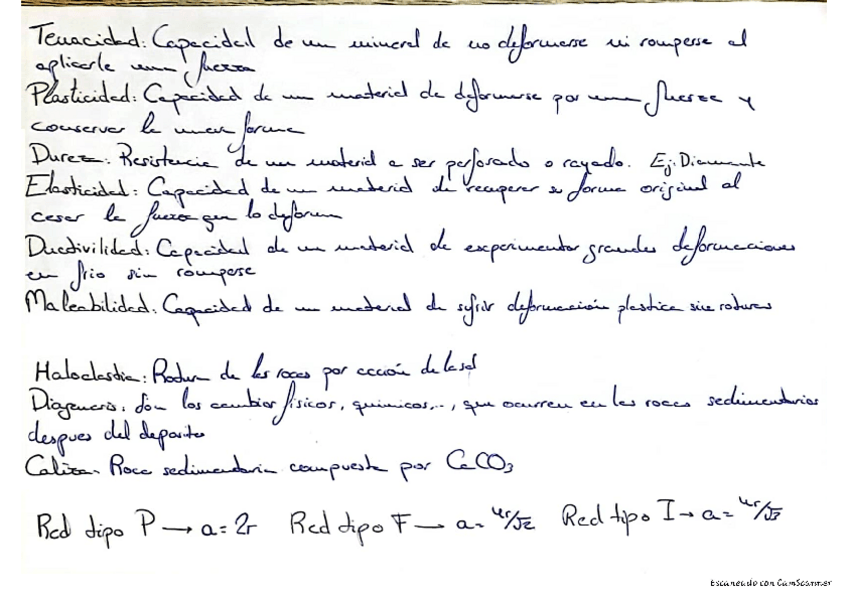 Tenacidad: Capacidad de un mineral de no deformarse ni romperse al
aplicarle una fuerza
Plasticidad: Capacidad de un material de deformarse por una fuerza y
conservar la nueva forma
Dureza: Resistencia de un material a ser perforado o rayado. Ej: Diamante
Elasticidad: Capacidad de un material de recuperar su forma original al
cesar la fuerza que lo deforma
Ductivilidad: Capacidad de un material de experimentar grandes deformaciones
en frio sin romperse
Maleabilidad: Capacidad de un material de sufrir deformación plastica sin roturas
Haloclastia: Rotura de las rocas por acción de la sal
Diagenesis: Son los cambios físicos, químicos..., que ocurren en las rocas sedimentarias
despues del deposito
Caliza: Roca sedimentaria compuesta por CaCO3
Red tipo P → a = 2r Red tipo F → a = 4r/√2 Red tipo I → a = 4r/√3
Escaneado con CamScanner